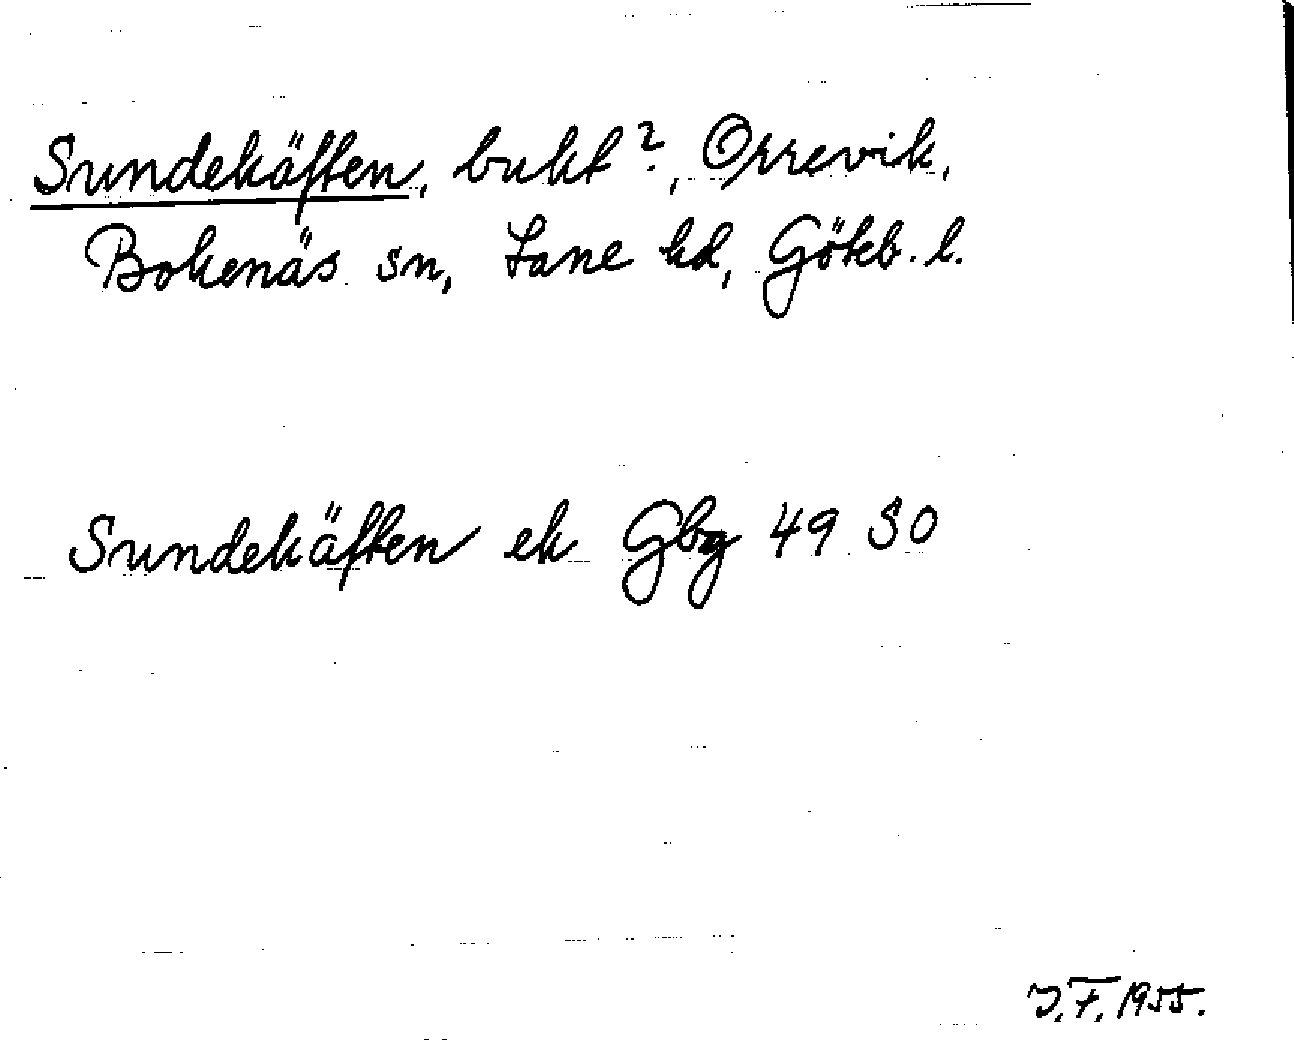 Sundekäften, bukt?, Orrevik,
Bokenäs sn, Lane hd, Göteb. l.
Sundekäften ek Gbg 49 SO
J.F. 1955.